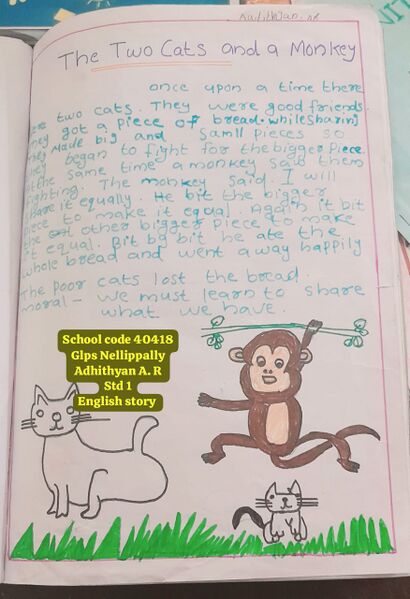 The Two Cats and a Monkey
once upon a time there
were two cats. They were good friends.
They got a piece of bread. whilesharing
they made big and samll pieces so
they began to fight for the bigger piece.
At the same time a monkey saw them
fighting. The monkey said. I will
share it equally. He bit the bigger
piece to make it equal. Again it bit
the other bigger piece to make
it equal. Bit by bit he ate the
whole bread and went away happily
The poor cats lost the bread.
moral - we must learn to share
what we have.
School code 40418
Glps Nellippally
Adhithyan A. R
Std 1
English story